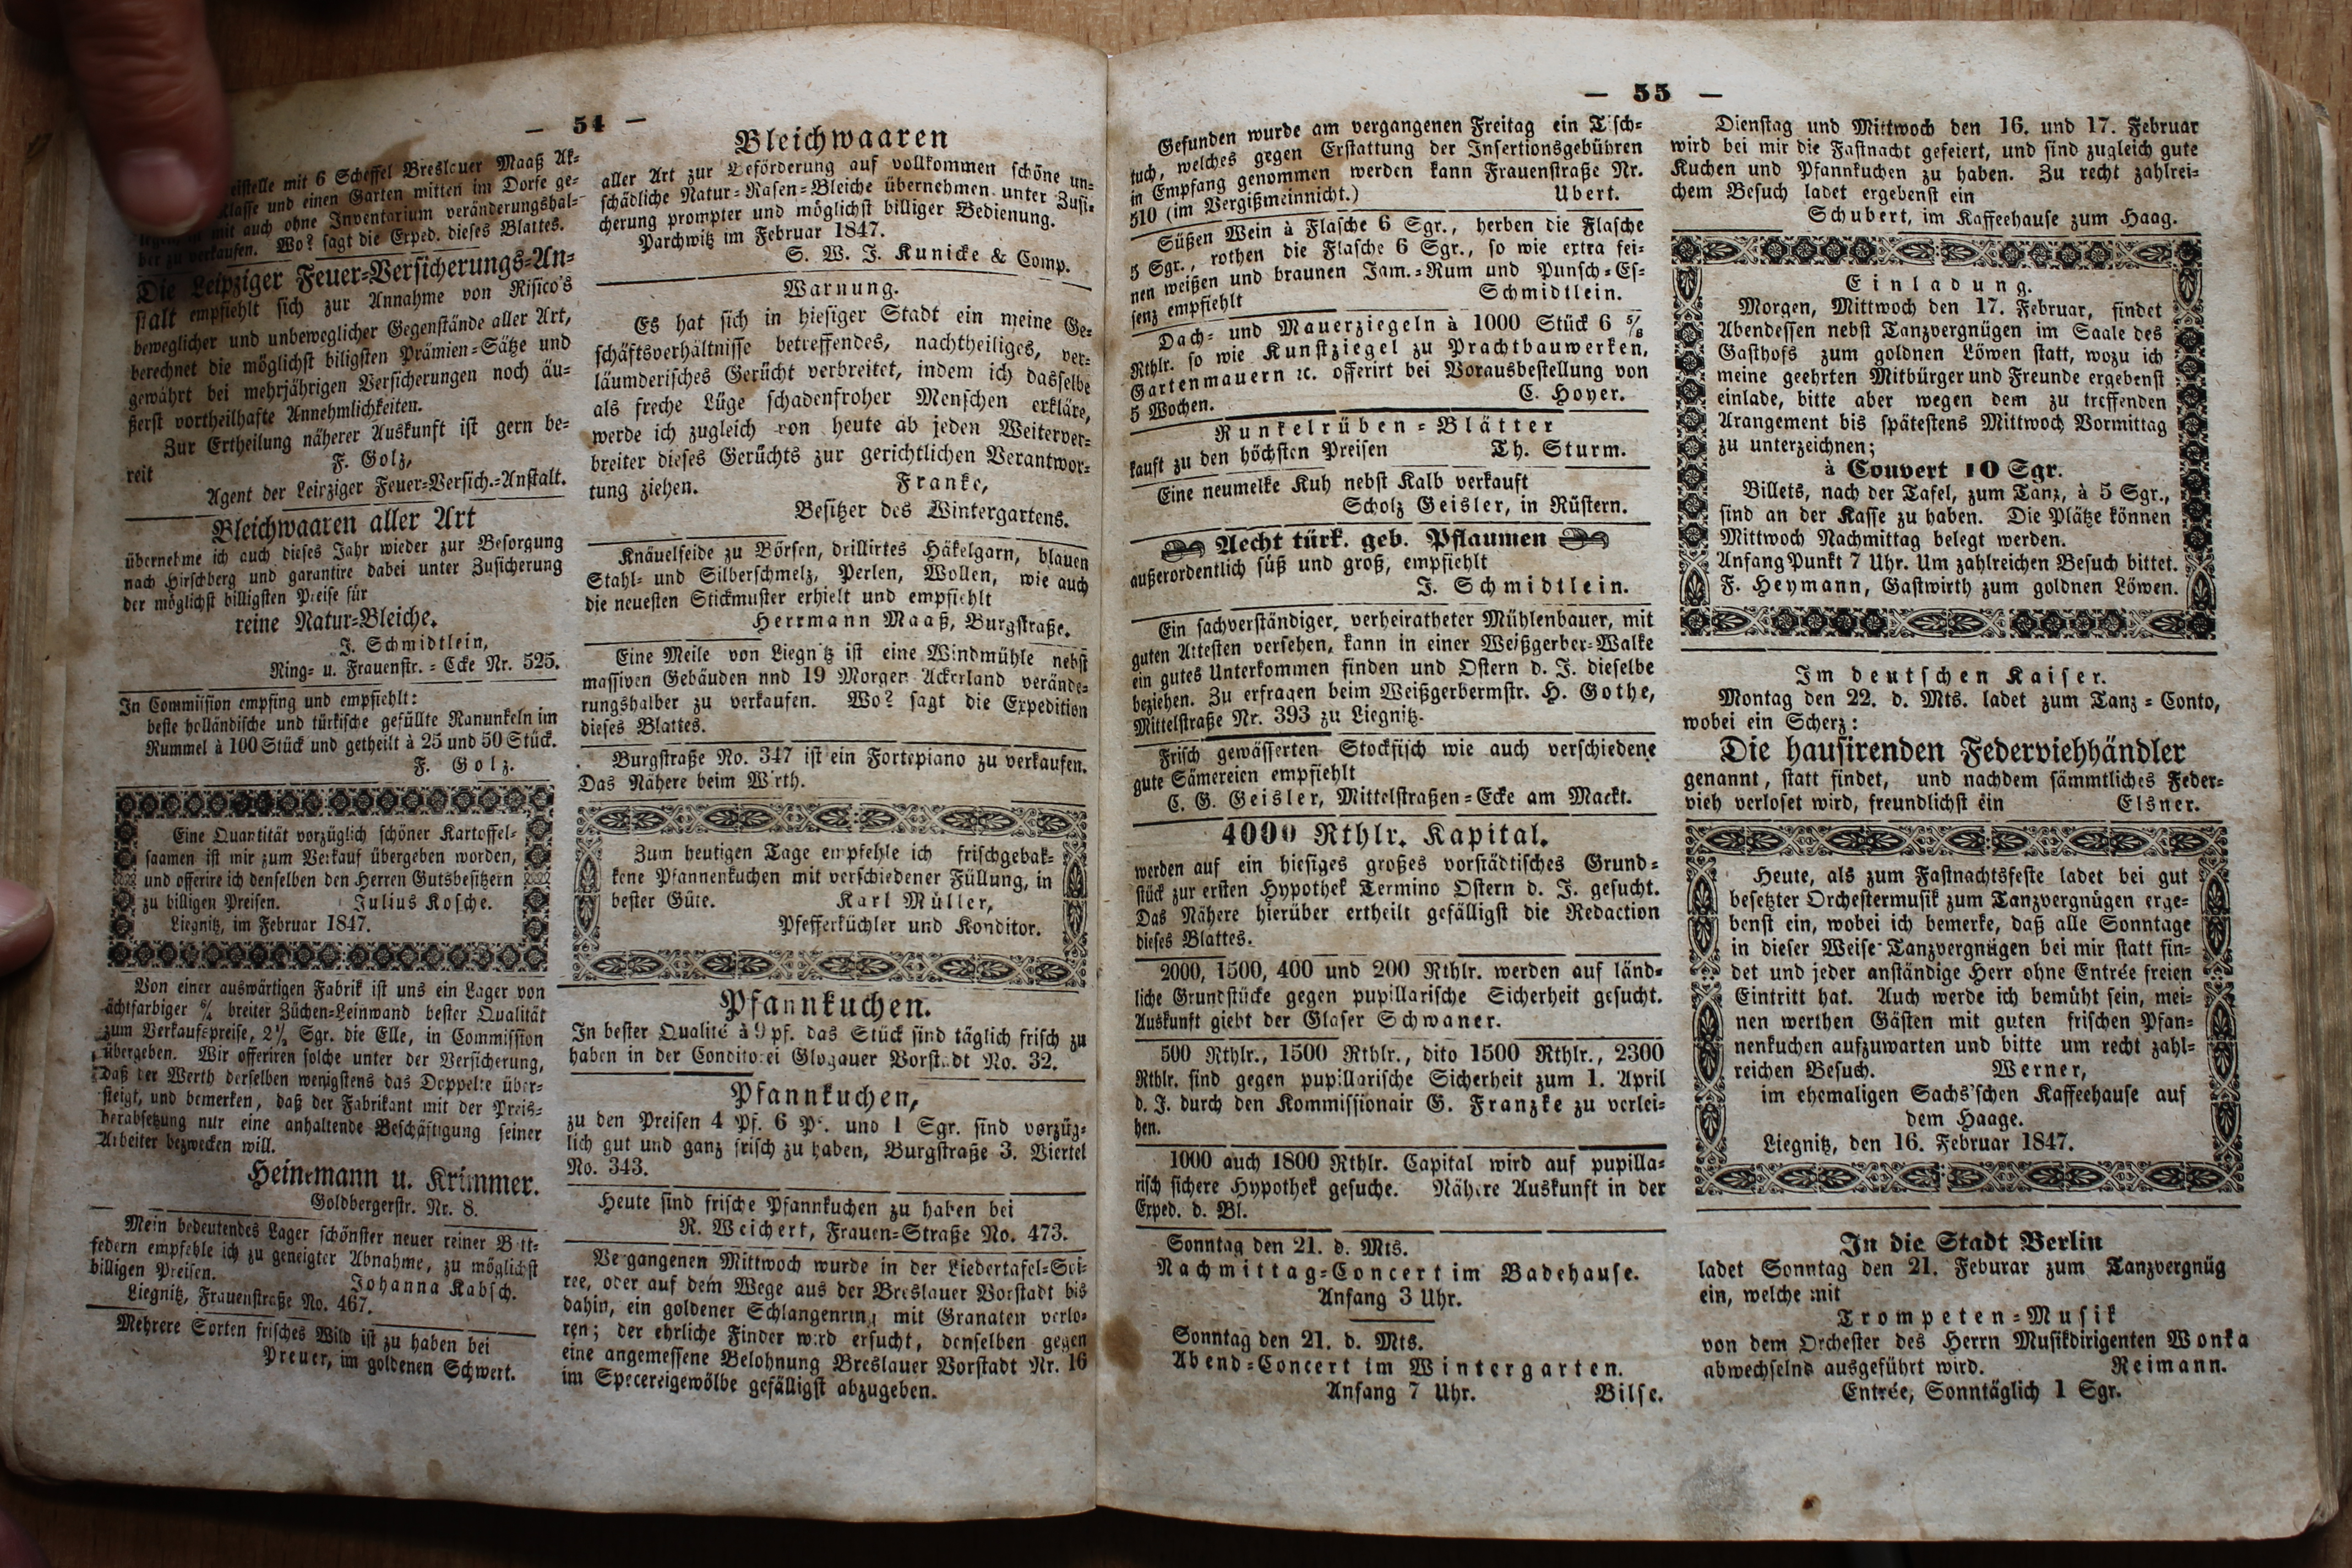 — 54 —
eistelle mit 6 Scheffel Breslauer Maaß Ak-
klasse und einen Garten mitten im Dorfe ge-
mit auch ohne Inventarium veränderungshal-
ber zu verkaufen. Wo? sagt die Exped. dieses Blattes.
Die Leipziger Feuer-Versicherungs-An-
stalt empfiehlt sich zur Annahme von Risico's
beweglicher und unbeweglicher Gegenstände aller Art,
berechnet die möglichst biligsten Prämien-Sätze und
gewährt bei mehrjährigen Versicherungen noch äu-
ßerst vortheilhafte Annehmlichkeiten.
Zur Ertheilung näherer Auskunft ist gern be-
reit F. Golz,
Agent der Leipziger Feuer-Versich.-Anstalt.
Bleichwaaren aller Art
übernehme ich auch dieses Jahr wieder zur Besorgung
nach Hirschberg und garantire dabei unter Zusicherung
der möglichst billigsten Preise für
reine Natur-Bleiche.
J. Schmidtlein,
Ring- u. Frauenstr.-Ecke Nr. 525.
In Commission empfing und empfiehlt:
beste holländische und türkische gefüllte Ranunkeln im
Rummel à 100 Stück und getheilt à 25 und 50 Stück.
F. Golz.
Eine Quantität vorzüglich schöner Kartoffel-
saamen ist mir zum Verkauf übergeben worden,
und offerire ich denselben den Herren Gutsbesitzern
zu billigen Preisen. Julius Kosche.
Liegnitz, im Februar 1847.
Von einer auswärtigen Fabrik ist uns ein Lager von
ächtfarbiger 6/4 breiter Züchen-Leinwand bester Qualität
zum Verkaufspreise, 2½ Sgr. die Elle, in Commission
übergeben. Wir offeriren solche unter der Versicherung,
daß der Werth derselben wenigstens das Doppelte über-
steigt, und bemerken, daß der Fabrikant mit der Preis-
herabsetzung nur eine anhaltende Beschäftigung seiner
Arbeiter bezwecken will.
Heinemann u. Krimmer.
Goldbergerstr. Nr. 8.
Mein bedeutendes Lager schönster neuer reiner Bett-
federn empfehle ich zu geneigter Abnahme, zu möglichst
billigen Preisen. Johanna Kabsch.
Liegnitz, Frauenstraße No. 467.
Mehrere Sorten frisches Wild ist zu haben bei
Preuer, im goldenen Schwert.
Bleichwaaren
aller Art zur Beförderung auf vollkommen schöne un-
schädliche Natur-Rasen-Bleiche übernehmen unter Zusi-
cherung prompter und möglichst billiger Bedienung.
Parchwitz im Februar 1847.
S. W. J. Kunicke & Comp.
Warnung.
Es hat sich in hiesiger Stadt ein meine Ge-
schäftsverhältnisse betreffendes, nachtheiliges, ver-
läumderisches Gerücht verbreitet, indem ich dasselbe
als freche Lüge schadenfroher Menschen erkläre,
werde ich zugleich von heute ab jeden Weiterver-
breiter dieses Gerüchts zur gerichtlichen Verantwor-
tung ziehen. Franke,
Besitzer des Wintergartens.
Knäuelseide zu Börsen, drillirtes Häkelgarn, blauen
Stahl- und Silberschmelz, Perlen, Wollen, wie auch
die neuesten Stickmuster erhielt und empfiehlt
Herrmann Maaß, Burgstraße.
Eine Meile von Liegnitz ist eine Windmühle nebst
massiven Gebäuden nnd 19 Morgen Ackerland verände-
rungshalber zu verkaufen. Wo? sagt die Expedition
dieses Blattes.
Burgstraße No. 347 ist ein Fortepiano zu verkaufen.
Das Nähere beim Wirth.
Zum heutigen Tage empfehle ich frischgebak-
kene Pfannenkuchen mit verschiedener Füllung, in
bester Güte. Karl Müller,
Pfefferküchler und Konditor.
Pfannkuchen.
In bester Qualité à 9 pf. das Stück sind täglich frisch zu
haben in der Conditorei Glogauer Vorstadt No. 32.
Pfannkuchen,
zu den Preisen 4 Pf. 6 Pf. und 1 Sgr. sind vorzüg-
lich gut und ganz frisch zu haben, Burgstraße 3. Viertel
No. 343.
Heute sind frische Pfannkuchen zu haben bei
R. Weichert, Frauen-Straße No. 473.
Vergangenen Mittwoch wurde in der Liedertafel-Soi-
ree, oder auf dem Wege aus der Breslauer Vorstadt bis
dahin, ein goldener Schlangenring mit Granaten verlo-
ren; der ehrliche Finder wird ersucht, denselben gegen
eine angemessene Belohnung Breslauer Vorstadt Nr. 16
im Specereigewölbe gefälligst abzugeben.
— 55 —
Gefunden wurde am vergangenen Freitag ein Tisch-
tuch, welches gegen Erstattung der Insertionsgebühren
in Empfang genommen werden kann Frauenstraße Nr.
510 (im Vergißmeinnicht.) Ubert.
Süßen Wein à Flasche 6 Sgr., herben die Flasche
5 Sgr., rothen die Flasche 6 Sgr., so wie extra fei-
nen weißen und braunen Jam.-Rum und Punsch-Es-
senz empfiehlt Schmidtlein.
Dach- und Mauerziegeln à 1000 Stück 6 5/8
Rthlr. so wie Kunstziegel zu Prachtbauwerken,
Gartenmauern ꝛc. offerirt bei Vorausbestellung von
5 Wochen. C. Hoyer.
Runkelrüben-Blätter
kauft zu den höchsten Preisen Th. Sturm.
Eine neumelke Kuh nebst Kalb verkauft
Scholz Geisler, in Rüstern.
Aecht türk. geb. Pflaumen
außerordentlich süß und groß, empfiehlt
J. Schmidtlein.
Ein sachverständiger, verheiratheter Mühlenbauer, mit
guten Attesten versehen, kann in einer Weißgerber-Walke
ein gutes Unterkommen finden und Ostern d. J. dieselbe
beziehen. Zu erfragen beim Weißgerbermstr. H. Gothe,
Mittelstraße Nr. 393 zu Liegnitz.
Frisch gewässerten Stockfisch wie auch verschiedene
gute Sämereien empfiehlt
C. G. Geisler, Mittelstraßen-Ecke am Mackt.
4000 Rthlr. Kapital.
werden auf ein hiesiges großes vorstädtisches Grund-
stück zur ersten Hypothek Termino Ostern d. J. gesucht.
Das Nähere hierüber ertheilt gefälligst die Redaction
dieses Blattes.
2000, 1500, 400 und 200 Rthlr. werden auf länd-
liche Grundstücke gegen pupillarische Sicherheit gesucht.
Auskunft giebt der Glaser Schwaner.
500 Rthlr., 1500 Rthlr., dito 1500 Rthlr., 2300
Rthlr. sind gegen pupillarische Sicherheit zum 1. April
d. J. durch den Kommissionair G. Franzke zu verlei-
hen.
1000 auch 1800 Rthlr. Capital wird auf pupilla-
risch sichere Hypothek gesuche. Nähere Auskunft in der
Exped. d. Bl.
Sonntag den 21. d. Mts.
Nachmittag-Concert im Badehause.
Anfang 3 Uhr.
Sonntag den 21. d. Mts.
Abend-Concert im Wintergarten.
Anfang 7 Uhr. Bilse.
Dienstag und Mittwoch den 16. und 17. Februar
wird bei mir die Fastnacht gefeiert, und sind zugleich gute
Kuchen und Pfannkuchen zu haben. Zu recht zahlrei-
chem Besuch ladet ergebenst ein
Schubert, im Kaffeehause zum Haag.
Einladung.
Morgen, Mittwoch den 17. Februar, findet
Abendessen nebst Tanzvergnügen im Saale des
Gasthofs zum goldnen Löwen statt, wozu ich
meine geehrten Mitbürger und Freunde ergebenst
einlade, bitte aber wegen dem zu treffenden
Arangement bis spätestens Mittwoch Vormittag
zu unterzeichnen;
à Couvert 10 Sgr.
Billets, nach der Tafel, zum Tanz, à 5 Sgr.,
sind an der Kasse zu haben. Die Plätze können
Mittwoch Nachmittag belegt werden.
Anfang Punkt 7 Uhr. Um zahlreichen Besuch bittet.
F. Heymann, Gastwirth zum goldnen Löwen.
Im deutschen Kaiser.
Montag den 22. d. Mts. ladet zum Tanz-Conto,
wobei ein Scherz:
Die hausirenden Federviehhändler
genannt, statt findet, und nachdem sämmtliches Feder-
vieh verloset wird, freundlichst ein Elsner.
Heute, als zum Fastnachtsfeste ladet bei gut
besetzter Orchestermusik zum Tanzvergnügen erge-
benst ein, wobei ich bemerke, daß alle Sonntage
in dieser Weise Tanzvergnügen bei mir statt fin-
det und jeder anständige Herr ohne Entrée freien
Eintritt hat. Auch werde ich bemüht sein, mei-
nen werthen Gästen mit guten frischen Pfan-
nenkuchen aufzuwarten und bitte um recht zahl-
reichen Besuch. Werner,
im ehemaligen Sachs'schen Kaffeehause auf
dem Haage.
Liegnitz, den 16. Februar 1847.
In die Stadt Berlin
ladet Sonntag den 21. Feburar zum Tanzvergnüg
ein, welche mit
Trompeten-Musik
von dem Orchester des Herrn Musikdirigenten Wonka
abwechselnd ausgeführt wird. Reimann.
Entrée, Sonntäglich 1 Sgr.